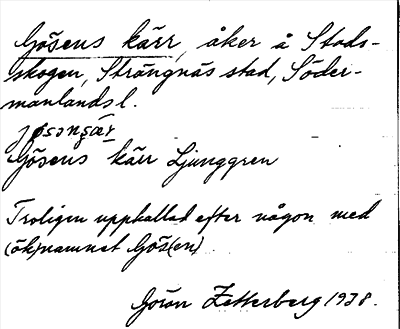 Gösens kärr, åker å Stads-
skogen, Strängnäs stad, Söder-
manlands l.
jøsənsær
Gösens kärr Ljunggren
Troligen uppkallad efter någon med
(ök)namnet Gös(en).
Göran Zetterberg 1938.